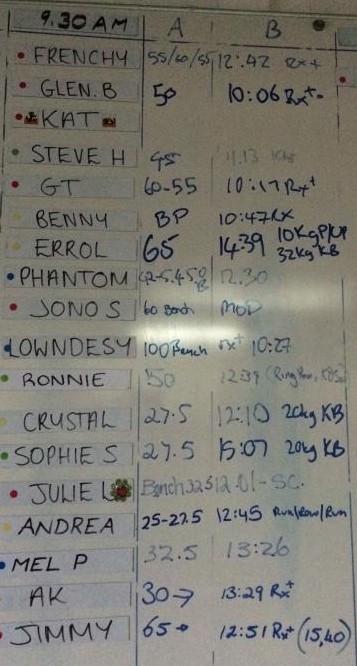 9.30 AM A B
FRENCHY 55/60/55 12:42 Rx+
GLEN.B 50 10:06 Rx+
KAT
STEVE H 45 11.13
GT 60-55 10:17 Rx+
BENNY BP 10:47 RX
ERROL 65 14:39 10KgP/UP 32kg KB
PHANTOM 12.30
JONO S 60 Bench MOD
LOWNDESY 100 Bench Rx+ 10:27
RONNIE 50 12:39
CRYSTAL 27.5 12:10 20kg KB
SOPHIE S 27.5 15:07 20kg KB
JULIE L Bench 32.5 12.01 - SC.
ANDREA 25-27.5 12:45 Run/Row/Run
MEL P 32.5 13:26
AK 30→ 13:29 Rx+
JIMMY 65→ 12:51 Rx+ (15,40)